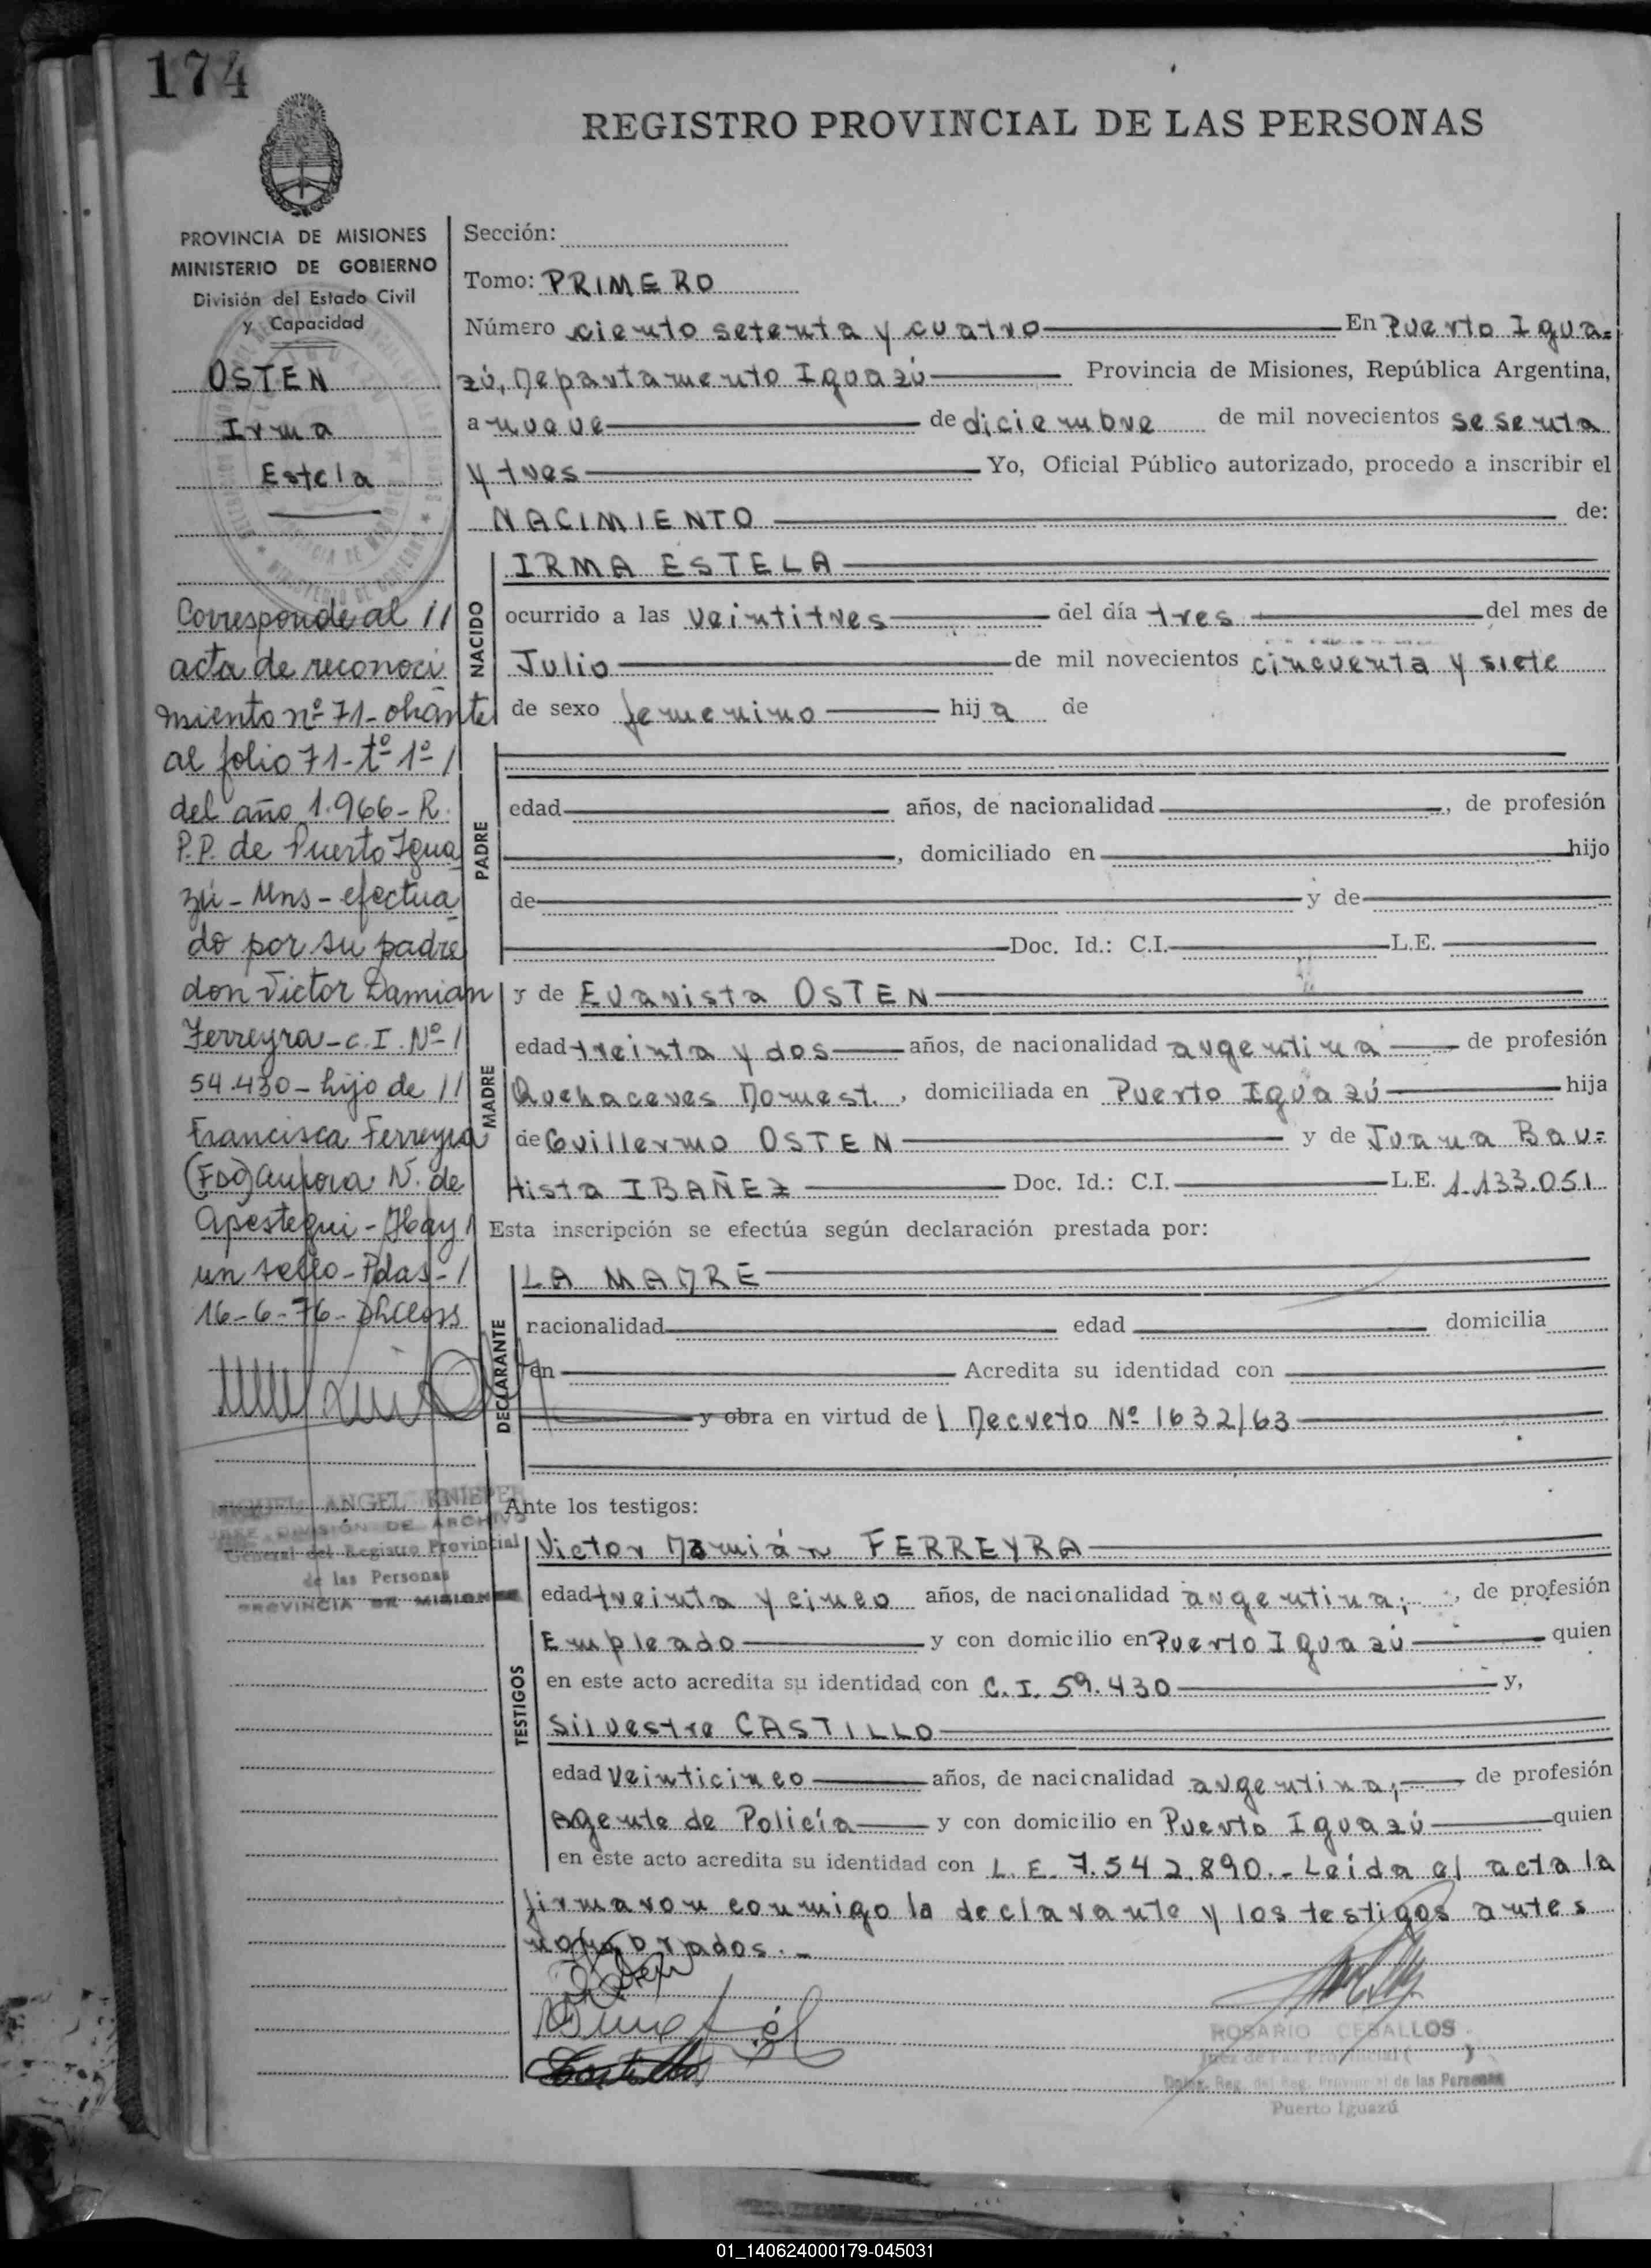 174
REGISTRO PROVINCIAL DE LAS PERSONAS
PROVINCIA DE MISIONES
MINISTERIO DE GOBIERNO
División del Estado Civil
y Capacidad
OSTEN
Irma
Estela
Corresponde al //
acta de reconoci
miento nº 71- obrante
al folio 71- tº 1º /
del año 1.966- R.
P.P. de Puerto Igua
zú - Mns - efectua
do por su padre
don Victor Damian
Ferreyra - C.I. Nº /
54.430 - hijo de //
Francisca Ferreyra
(Fdo) Aurora N. de
Apestegui - Hay /
un sello - Pdas - /
16-6-76-
MIGUEL ANGEL KNIEPER
JEFE DIVISIÓN DE ARCHIVO
General del Registro Provincial
de las Personas
PROVINCIA DE MISIONES
Sección:
Tomo: PRIMERO
Número ciento setenta y cuatro En Puerto Igua=
zú, Departamento Iguazú Provincia de Misiones, República Argentina,
a nueve de diciembre de mil novecientos sesenta
y tres Yo, Oficial Público autorizado, procedo a inscribir el
NACIMIENTO de:
NACIDO
IRMA ESTELA
ocurrido a las veintitres del día tres del mes de
Julio de mil novecientos cincuenta y siete
de sexo femenino hij a de
PADRE
edad años, de nacionalidad , de profesión
, domiciliado en hijo
de y de
Doc. Id.: C.I. L.E.
MADRE
y de Evarista OSTEN
edad treinta y dos años, de nacionalidad argentina de profesión
Quehaceres Domest. , domiciliada en Puerto Iguazú hija
de Guillermo OSTEN y de Juana Bau=
tista IBAÑEZ Doc. Id.: C.I. L.E. 1.133.051
Esta inscripción se efectúa según declaración prestada por:
DECLARANTE
LA MADRE
nacionalidad edad domicilia
en Acredita su identidad con
y obra en virtud de l Decreto Nº 1632/63
Ante los testigos:
TESTIGOS
Victor Damián FERREYRA
edad treinta y cinco años, de nacionalidad argentina; , de profesión
Empleado y con domicilio en Puerto Iguazú quien
en este acto acredita su identidad con C.I. 59.430 y,
Silvestre CASTILLO
edad veinticinco años, de nacionalidad argentina; de profesión
Agente de Policía y con domicilio en Puerto Iguazú quien
en este acto acredita su identidad con L.E. 7.542.890.- Leída el acta la
firmaron conmigo la declarante y los testigos antes
nombrados.-
ROSARIO CEBALLOS
Juez de Paz Provincial ( )
Reg. del Reg. Provincial de las Personas
Puerto Iguazú
01_140624000179-045031